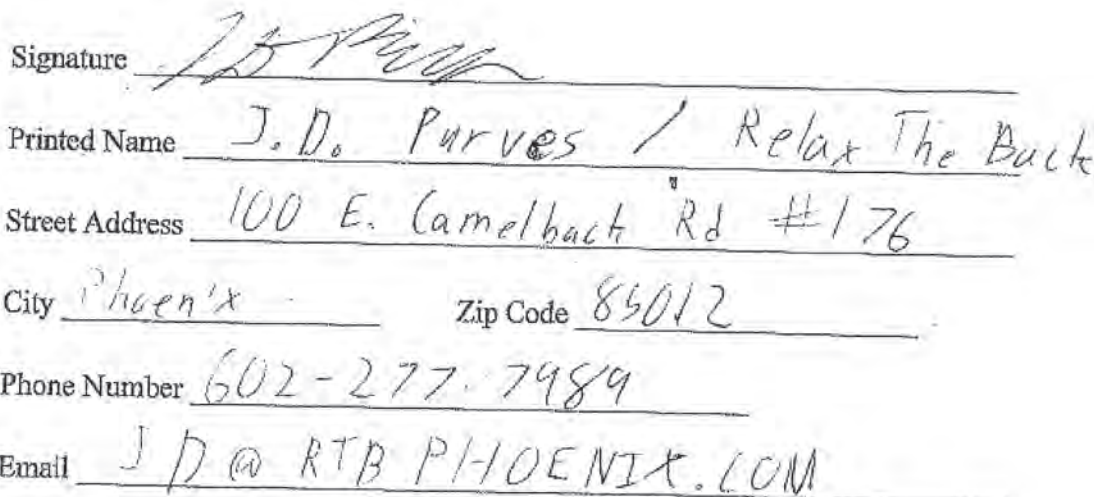 Signature JD Purves
Printed Name J.D. Purves / Relax The Back
Street Address 100 E. Camelback Rd #176
City Phoenix Zip Code 85012
Phone Number 602-277-7989
Email JD@RTBPHOENIX.COM